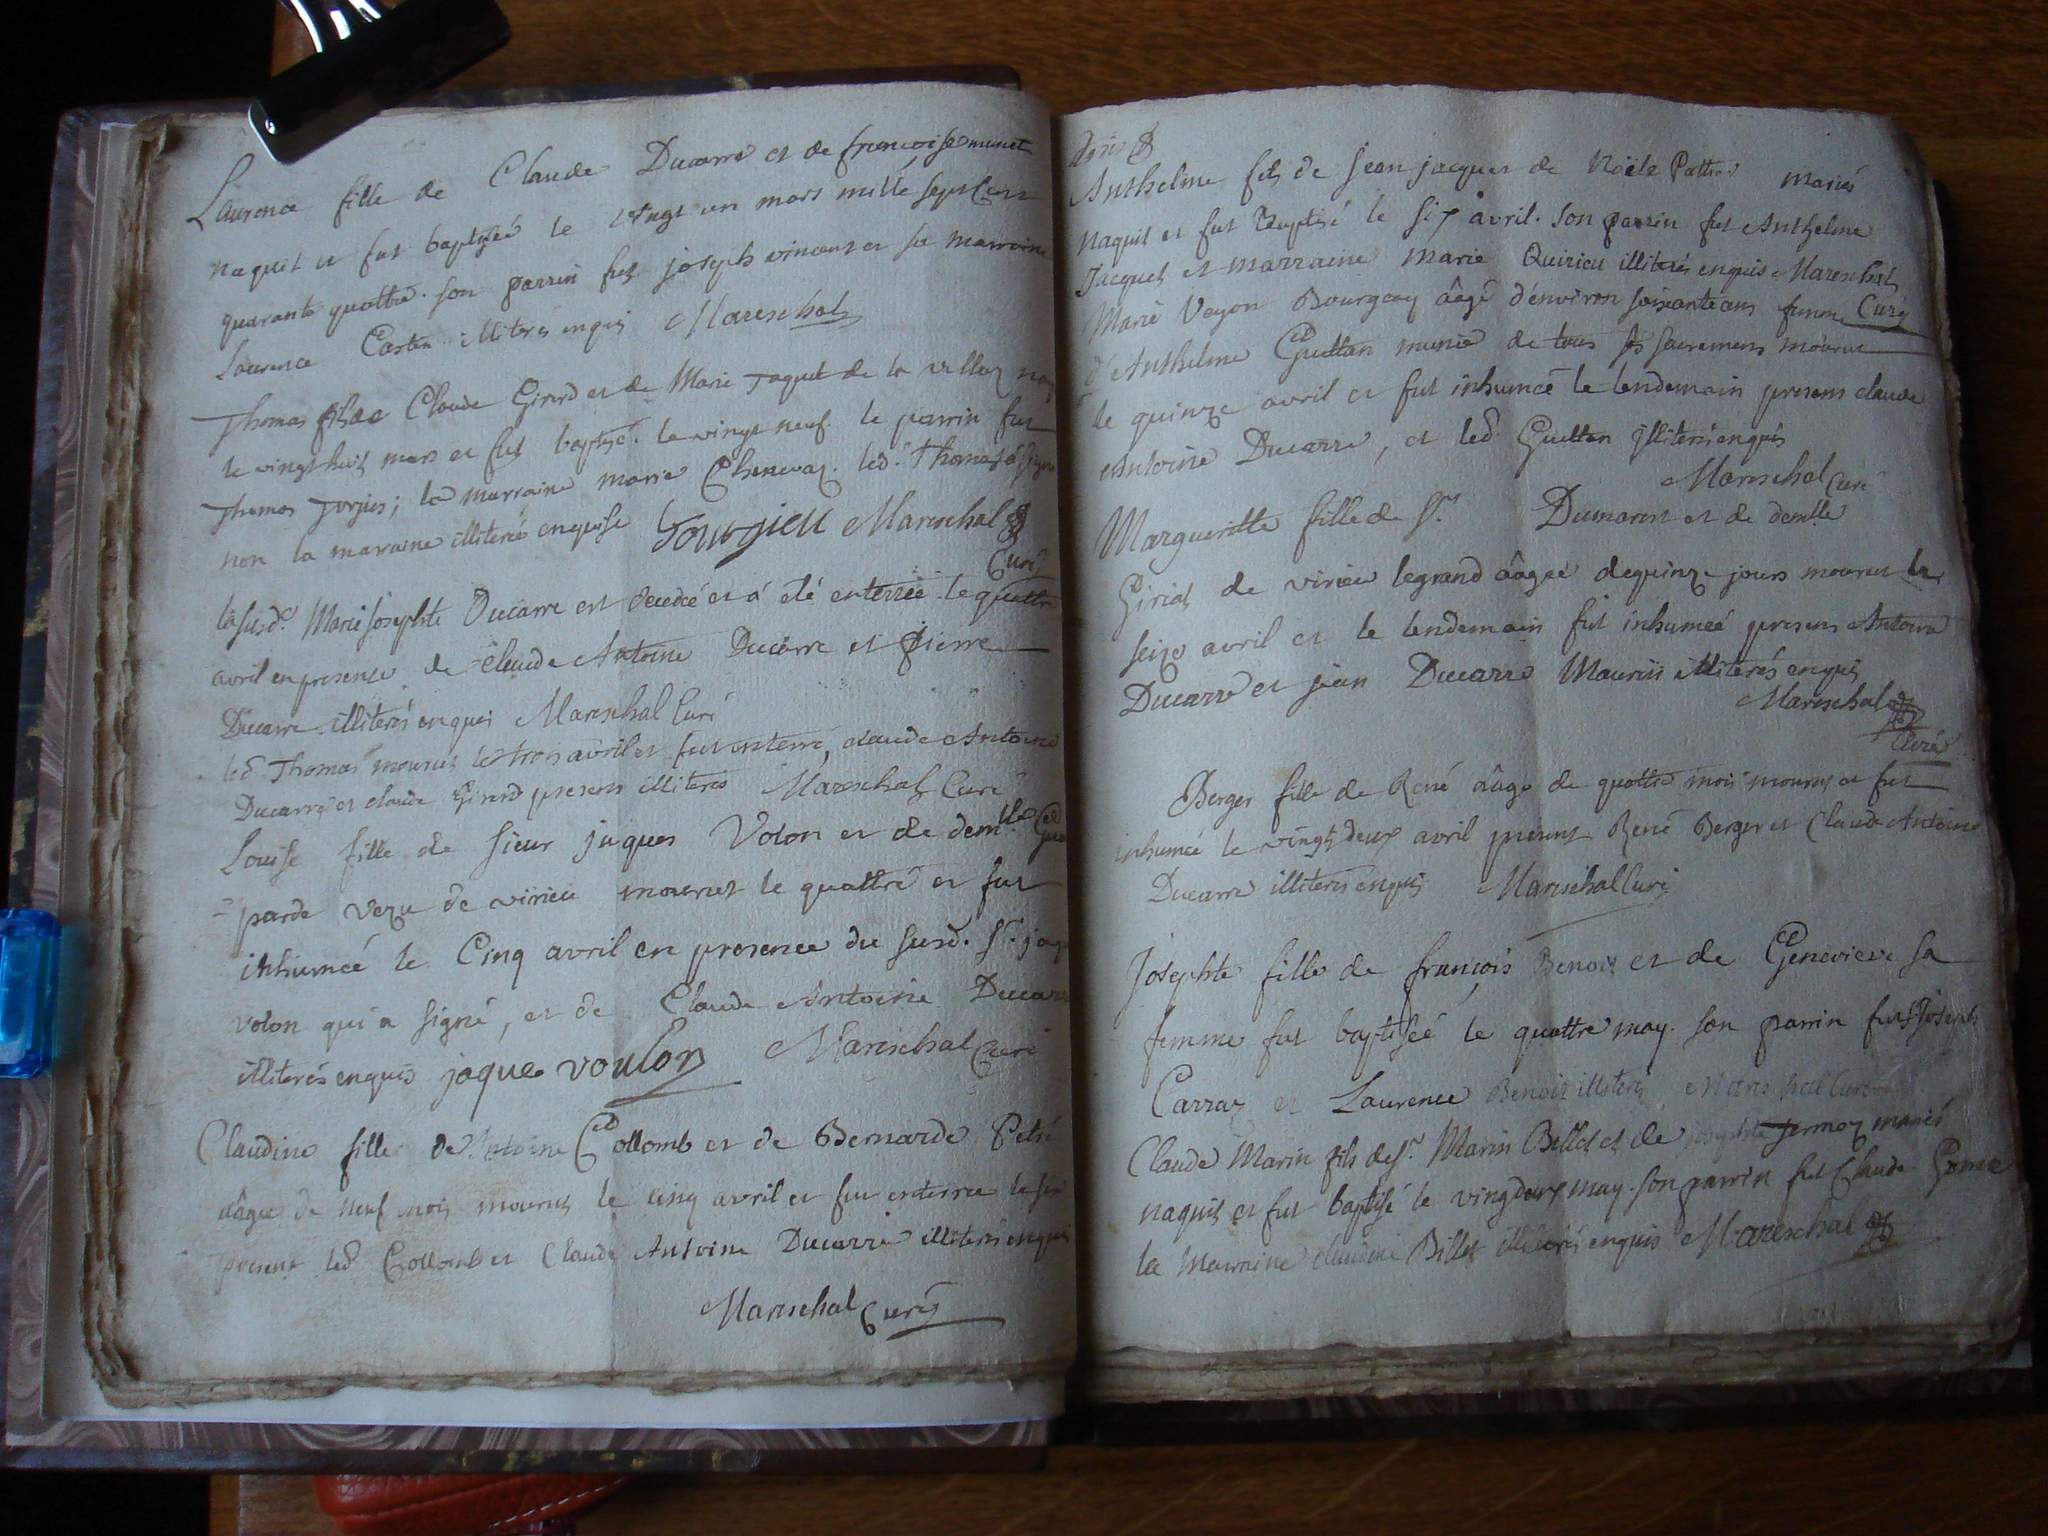 Laurence fille de Claude Ducarre et de francoise munet
naquit et fut baptisée le vingt un mars mille sept cent
quarante quattre. son parrin fut joseph vincent et sa marraine
Laurence Castin illiterés enquis Mareschal
Thomas fils de Claude Girard et de Marie Taquet de la villaz
le vingt huit mars et fut baptisé le vingt neuf. le parrin fut
Thomas ; la marraine marie Chenevaz. led. Thomas a signé
non la maraine illiterée enquise Mareschal
Curé
la susd. Marie Josephte Ducarre est decedée et a été enterrée le quattre
avril en presence de Claude Antoine Ducarre et pierre
Ducarre illiterés enquis Mareschal Curé
led Thomas mourut le trois avril et fut enterré, claude Antoine
Ducarre et claude Girard presens illiterés Mareschal Curé
Louise fille de sieur jaques Volon et de demlle
parde de virieu mourut le quattre et fut
inhumée le Cinq avril en presence du susd. Sr. jaq
volon qui a signé, et de Claude Antoine Ducarre
illiterés enquis jaque voulon Mareschal Curé
Claudine fille de Antoine Collomb et de Bernarde Petit
âagée de neuf mois mourut le cinq avril et fut enterrée le six
present led Collomb et Claude Antoine Ducarre illiterés enquis
Mareschal Curé
Anthelme fils de jean jacques de Noële mariés
naquit et fut baptisé le six avril. son parrin fut Anthelme
jacquet et marraine marie Quirieu illiterés enquis Mareschal
Curé
Marie Veyon Bourgeay âagé d'environ soixante ans femme
d'Anthelme Guettan munie de tous ses sacremens mourut
le quinze avril et fut inhumée le lendemain presens claude
Antoine Ducarre, et led. Guettan illiterés enquis
Mareschal Curé
Marguerite fille de Sr. Dumarest et de demlle
de virieu le grand âagée de quinze jours mourut le
seize avril et le lendemain fut inhumée presens Antoine
Ducarre et jean Ducarre Maurin illiterés enquis
Mareschal
Curé
Berger fille de René âage de quattre mois mourut et fut
inhumée le vingt deux avril present René Berger et Claude Antoine
Ducarre illiterés enquis Mareschal Curé
Josephte fille de francois Benoit et de Genevieve sa
femme fut baptisée le quattre may. son parrin fut Joseph
Carraz et Laurence Benoit illiterés Mareschal Curé
Claude Marin fils de Sr. Marin Billet et de josephte jermoz mariés
naquit et fut baptisé le vingdeux may. son parrin fut Claude
la Marraine claudine Billet illiterés enquis Mareschal